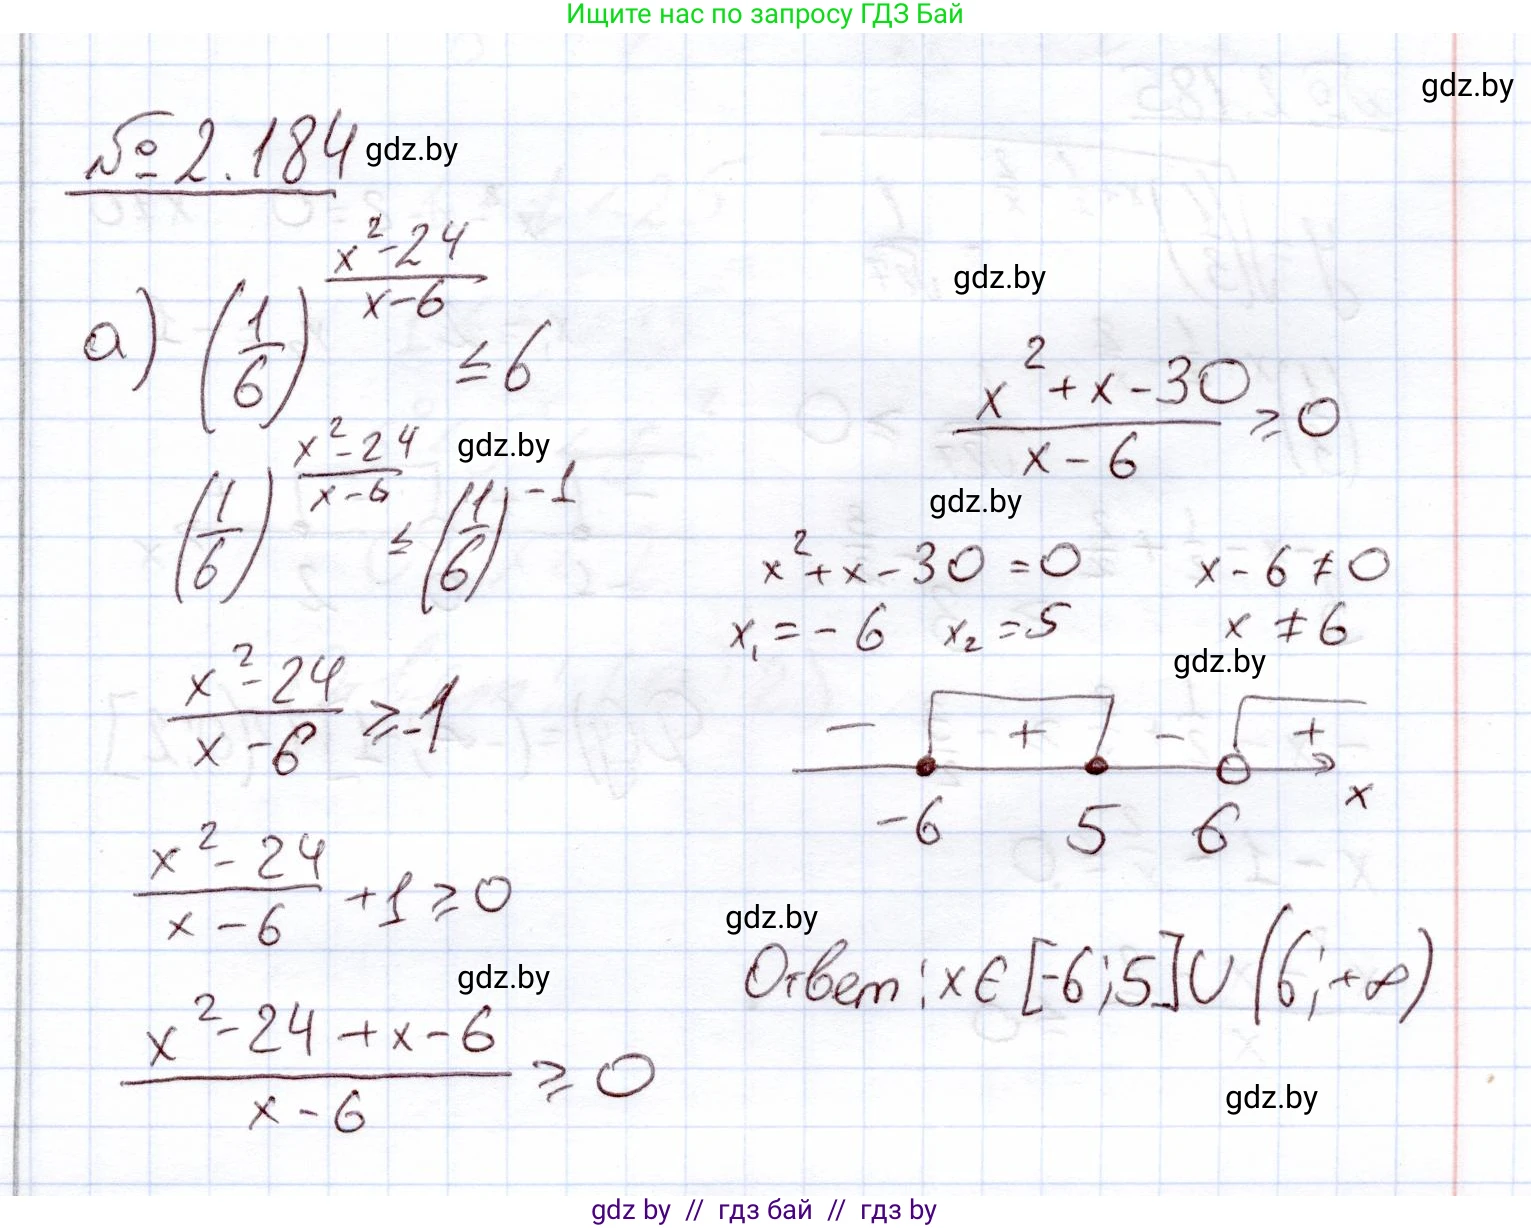 Ищите нас по запросу ГДЗ Бай
gdz.by
№ 2.184 gdz.by
а) (1/6)^((x²-24)/(x-6)) ≤ 6
gdz.by
(1/6)^((x²-24)/(x-6)) ≤ (1/6)^(-1)
(x²-24)/(x-6) ≥ -1
(x²-24)/(x-6) + 1 ≥ 0
gdz.by
(x²-24+x-6)/(x-6) ≥ 0
gdz.by
(x²+x-30)/(x-6) ≥ 0
gdz.by
x²+x-30=0 x-6≠0
x₁=-6 x₂=5 x≠6
gdz.by
- + - +
-6 5 6 x
gdz.by
Ответ: x∈[-6;5]∪(6;+∞)
gdz.by
gdz by // гдз бай // гдз by